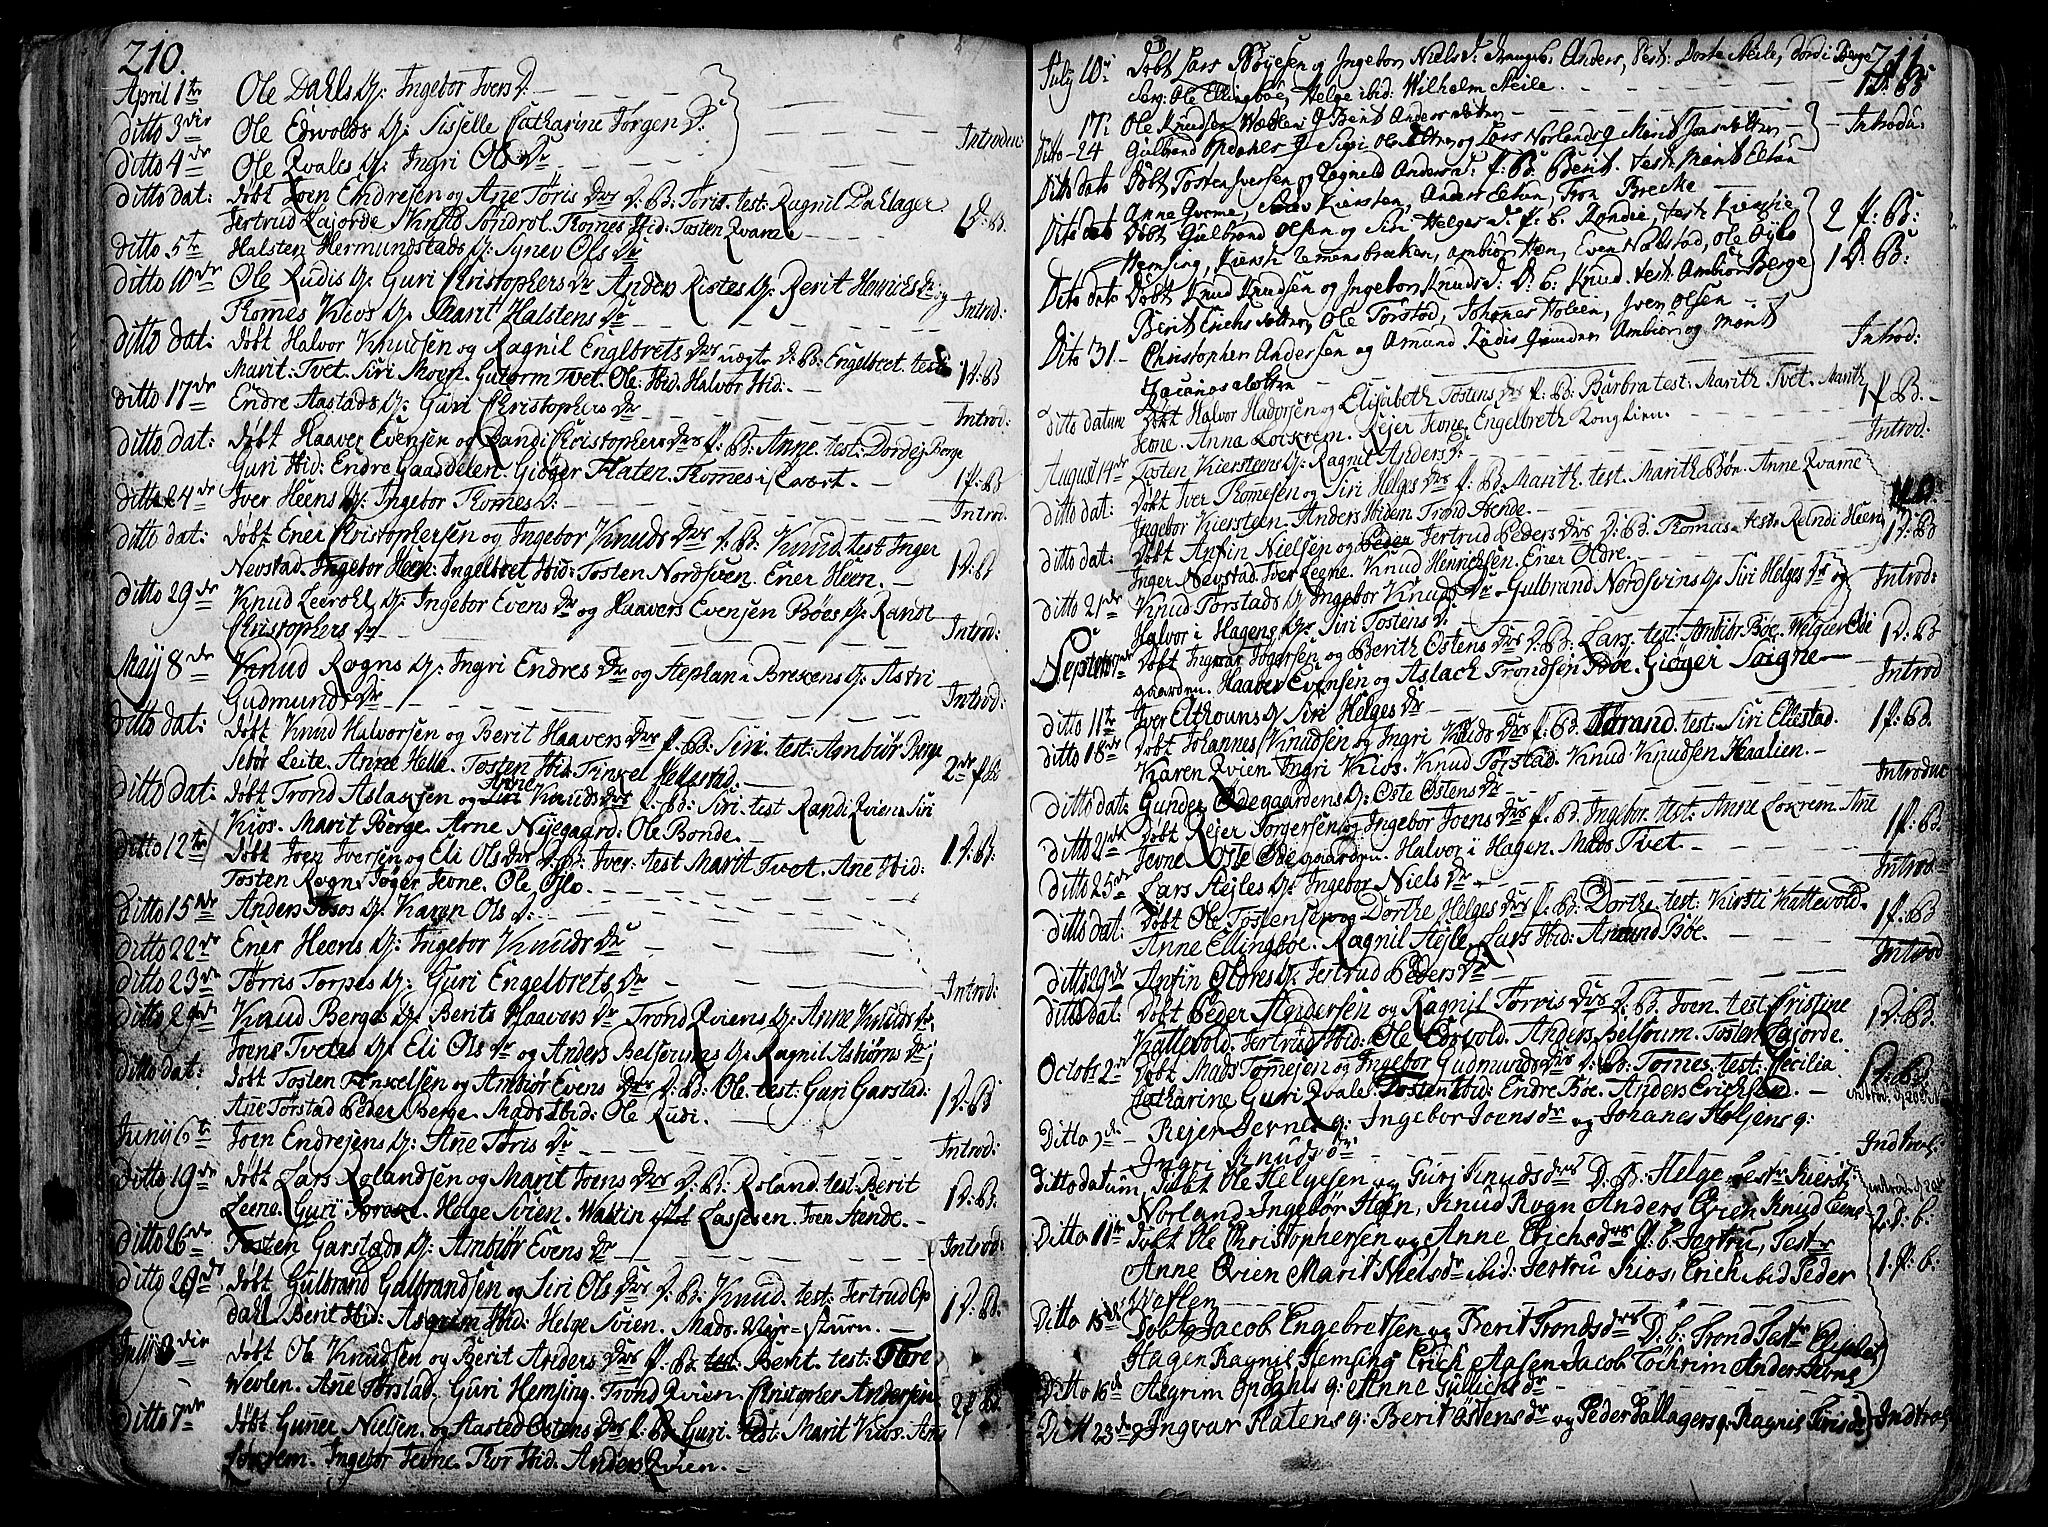 210.
April 1te Ole Dahls Q: Ingebor Ivers D:
ditto 3die Ole Edvolds Q: Sisselle Catharine Jørgens D: Introduc:
ditto 4de Ole Qvales Q: Ingri Ols Dr
ditto dat: døbt Joen Endresen og Ane Tøris Drs D: B: Tøris. test: Ragnil Dahlager
Jertrud Kajorde. Knud Sondrol. Thomes ibid: Tosten Qvame 1 D: B.
ditto 5te Halsten Hermundstads Q: Synev Ols Dr
ditto 10de Ole Rudis Q: Guri Christophers Dr Anders Ristes Q: Berit Henrichs Dr og
Thomes Kios Q: Marit Halstens Dr Introd:
ditto dat: døbt Halvor Knudsen og Ragnil Englbrets Drs uægte D: B: Engelbret. test:
Marit: Tvet. Siri Moyn. Gutorm Tvet. Ole: ibid. Halvor ibid: 1 D: B
ditto 17de Endre Aastads Q: Guri Christophers Dr Introd:
ditto dat: døbt Haaver Evensen og Randi Christophers Drs P: B: Anne. test: Dordej Berge
Guri ibid: Endre Gaasdelen. Giøger Flaten. Thomes i 1 P: B
ditto 24de Iver Heens Q: Ingebor Thomes D: Introd.
ditto dat: døbt Ener Christophersen og Ingebor Knuds Drs D: B: Knud. test Inger
Nevstad. Ingebor Heen. Ingelbret ibid: Tosten Nordsven. Ener Heen. 1 D: B
ditto 29de Knud Leerohl Q: Ingebor Evens Dr og Haavers Evensen Bøes Q: Randi
Christophers Dr Introd:
May 8de Knud Rogns Q: Ingri Endres Dr og Brekens Q: Astri
Gudmunds Dr Introd:
ditto dat: døbt Knud Halvorsen og Berit Haavers Drs P: B: Siri. test: Ambiør Berge
Sebør Leite. Anne Helle. Tosten ibid: Trinkel Hellestad. 2de P: B
ditto dat: døbt Trond Aslaksen og Anne Knuds Drs P: B: Siri. test Randi Qvien. Siri
Kios. Marit Berge. Arne Nijegaard: Ole Bonde.
ditto 12te døbt Joen Iversen og Eli Ols Drs D: B: Iver: test Marit Tvet. Ane ibid: 1. D: B:
Tosten Rogn. Jøger Jevne. Ole Øjlo.
ditto 15de Anders Q: Karen Ols D:
ditto 22de Ener Heens Q: Ingebor Knuds Dr
ditto 23de Tørris Torpes Q: Guri Engelbrets Dr Introd:
ditto 29de Knud Berges Q: Berits Haavers Dr Trond Qviens Q: Anne Knuds Dr,
Joens Tvetes Q: Eli Ols Dr og Anders Belsrums Q: Ragnil Asbiørns Dr,
ditto dat: døbt Tosten Finkelsen og Ambiør Evens Drs D: B: Ole. test: Guri Garstad:
Ane Tørstad Peder Berge. Mads ibid: Ole Rudi. 1 D: B
Juny 6te Joen Endresens Q: Ane Tøris Dr Introd:
ditto 19de døbt Lars Rolandsen og Marit Joens Drs D: B: Roland. test: Berit
Leene. Guri Helge Svien. Lassesen. Joen Hende. 1 D: B
ditto 26de Tosten Garstads Q: Ambiør Evens Dr Introd:
ditto 29de døbt Gulbrand Gulbrandsen og Siri Ols Drs D: B: Knud. test: Jertrud Op
dahl. Berit ibid: Asgrim ibid: Helge Svien. Mads. 1 D: B.
July 3die døbt Ole Knudsen og Berit Anders Drs P: B: Berit. test: Tore
Wevlen. Ane Tørstad. Guri Hemsing. Trond Qvien. Christopher Andersen
ditto 7de døbt Guner Nielsen. og Aasted Østens Drs P: B: Guri. test: Marit Kios. Ane 2 P: B.
Løkrem. Ingebør Jevne. Thor ibid. Anders Qvien.
211
July 10de Døbt Lars Børjesen og Ingebor Niels D: Anders, Test: Dorte Steile, Dordi Berge
Ole Ellingbøe, Helge ibid: Wilholm Steile. 1 D: B:
17: Ole Knudsen Q Berit Anders datter
Ditto 24 Gulbrand Opdahls Q Siri Ols datter og Lars Norlands Q Marit Joensdatter Introdu:
Ditto dato Døbt Tosten Iversen og Ragnild Anders D: P: B: Berit. test: Marit Eltun
Anne Qvame, Kiersten, Anders Eltun, Tron Brecke
Dito dato Døbt Gulbrand Olsen og Siri Helges D: P: B. Rondie, test: 2 P: B:
Hemsing, Ambiør Heen, Even Nøbstad, Ole Øjlo
Dito dato Døbt Knud Knudsen og Ingebor Knuds D: D: b: Knud. test: Ambiør Berge 1 D: B:
Berit Evens datter, Ole Tørstad, Johanes Holien, Iven Olsen
Dito 31 Christopher Andersen og Amund Rudis Qvinder Ambiør og Marit Introd:
ditto datum Døbt Halvor Hadorsen og Elisabeth Tostens Drs P: B: Barbra test: Marith Tvet. Marith
Jevne. Anna Løkrem. Rejer Jevne. Engelbreth Kongslien. 1 P: B.
August 14de Tosten Kiersteens Q: Ragnil Anders D: Introd:
ditto dat: Døbt Iver Thomesen og Siri Helges Drs P: B: Marith. test. Marith Bøn. Anne Qvame
Ingebor Kiersteen. Anders ibidem. Trond Hende.
ditto dat: Døbt Anfin Nielsen og Jertrud Peders Drs D: B: Thomas. test: Randi Heen 1 D: B
Inger Nevstad. Iver Leene. Knud Henrichsen. Ener Oldre.
ditto 21de Knud Tørstads Q Ingebor Knuds Dr Gulbrand Nordsvins Q: Siri Helges Dr og Introd:
Halvor i Hagens Q: Siri Tostens D:
Septem 7de Døbt Ingvar Jogersen og Berith Østens Drs D: B: Lars. test: Ambiør Bøe. Ødi 1 D: B
gaarden. Haaver Evensen og Aslach Trondsen Bøe. Giøger Soigne Introd
ditto 11te Iver Elthouns Q Siri Helges Dr
ditto 18de Døbt Johannes Knudsen og Ingri Knuds Drs P: B: test: Siri Ellestad. 1 P: B.
Karen Qvien. Ingri Kios. Knud Tørstad. Knud Knudsen Haalien.
ditto dat: Gunder Ødegaardens Q: Oste Østens Dr Introduc
ditto 21de Døbt Rejer Torgersen og Ingebor Joens Drs P: B: Ingebor. test: Anne Løkrem. Ane
Jevne. Oste Ødegaarden. Halvor i Hagen. Mads Tvet. 1 P: B.
ditto 25de Lars Stejles Q: Ingebor Niels Dr Introd:
ditto dat: Døbt Ole Tostensen og Dorthe Helges Drs P: B: Dorthe. test: Kirsti Kattevold.
Anne Ellingboe. Ragnil Stejle. Lars ibid: Amund Bøe. 1 P: B
ditto 29de Anfin Oldres Q: Jertrud Peders Dr Introd
ditto dat: Døbt Peder Andersen og Ragnil Torris Drs D: B. Joen. test: Cristine
Kattevold. Jertrud ibid: Ole Edsvold. Anders Belsrum. Tosten Kajorde. 1 D: B.
Octob: 2de Døbt Mads Tomesen og Ingebor Gudmunds Drs D: B. Tomes. test: Cecilia
Catharine Guri Qvales. Tosten ibid: Endre Bøe. Anders Erichsen. 1 D: B:
Ditto 9de Rejer Jevnes q: Ingebor Joens dr og Johanes Holjens q:
Ingri Knuds dr Indtrod:
Ditto datum Døbt Ole Helgesen og Gurj Knuds drs D. B. Helge Testr Kiersti
Norland Ingebør Heen, Knud Rogn Anders Qvien Knud Leene 2. D: b.
Ditto 11te Døbt Ole Christophersen og Anne Erichs drs P. b. Jertru, Testr
Anne Qvien Marit Niels dr ibid: Jertru Kios, Erich ibid Peder 1. P: b:
Weflen
Ditto 15de Døbt Jacob Engebretsen og Berit Tronds drs D. b: Trond Testr
Hagen Ragnil Hemsing Erich Aasen Jacob Løchrim Anders Jevne
Ditto 16de Asgrim Opdahls q: Anne Gullichs dr
Ditto 23de Ingvar Flatens q: Berit Østens dr og Peder Dallagers q: Ragnil Toris dr Indtrod